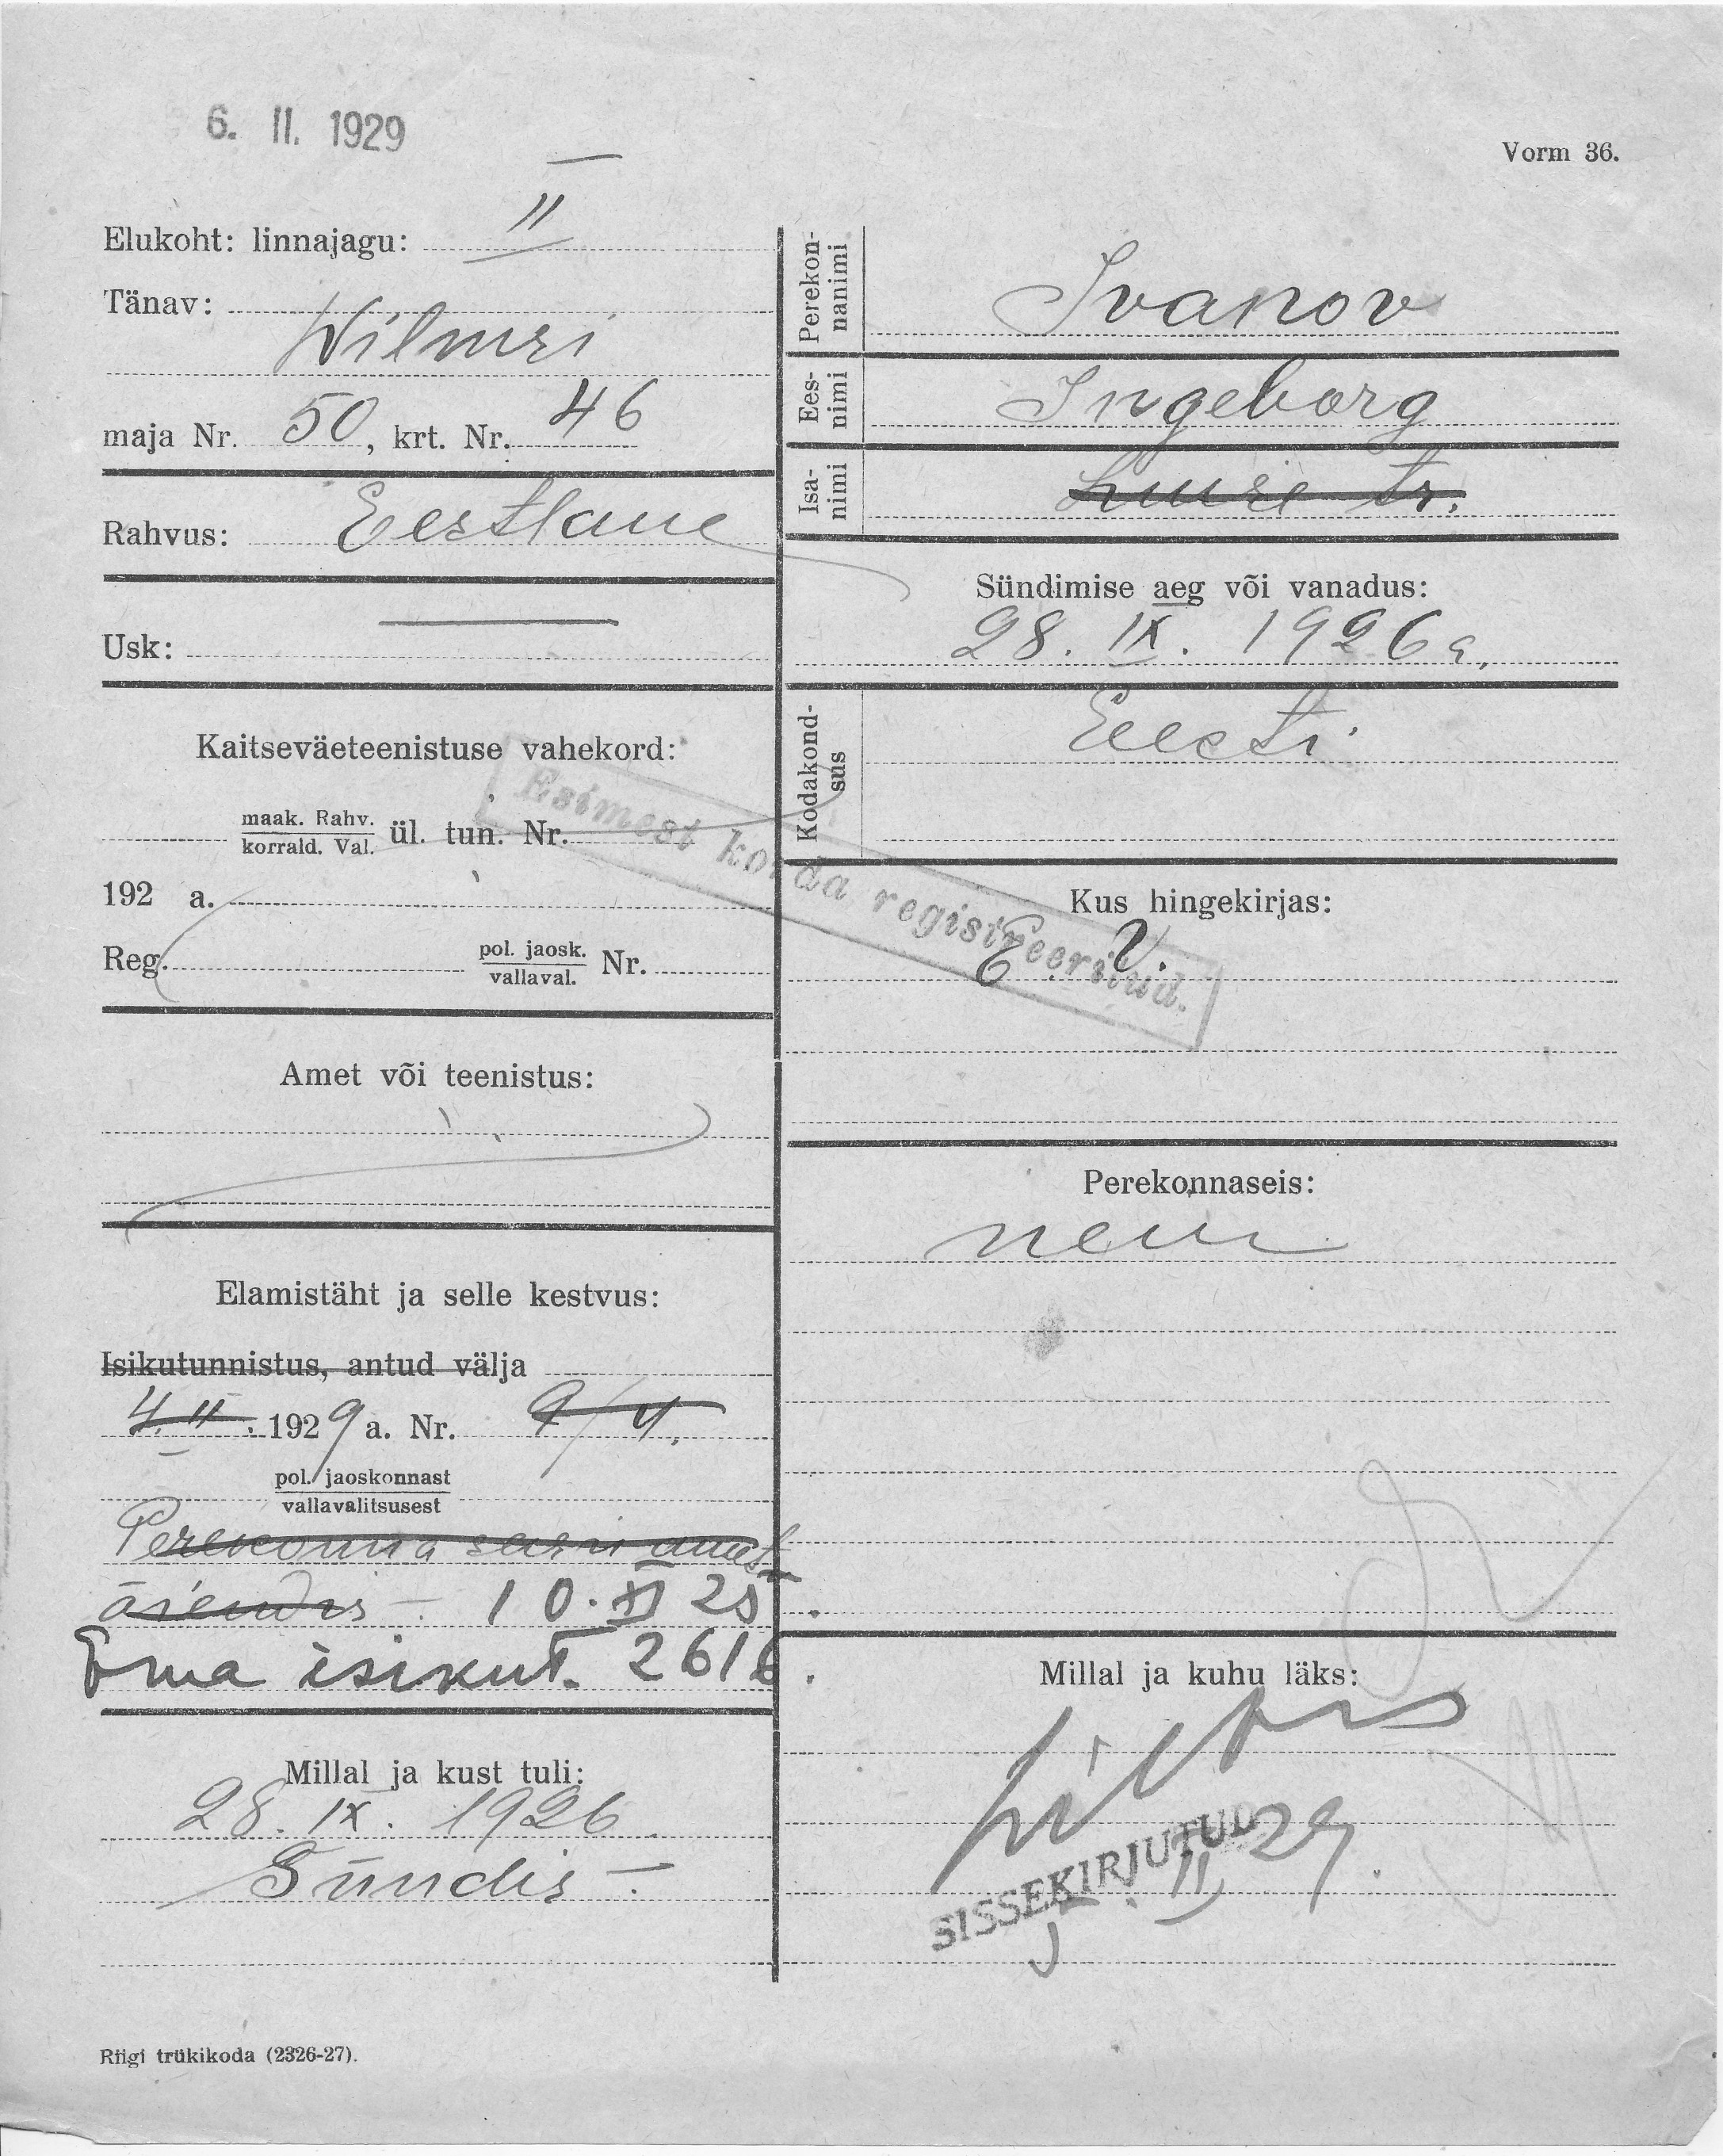 6. II. 1929
Vorm 36.
Elukoht: linnajagu: II
Tänav:
Wilmsi
maja Nr. 50, krt. Nr. 46
Rahvus: Eestlane
Usk: —
Kaitseväeteenistuse vahekord:
maak. Rahv.
korrald. Val.
ül. tun. Nr.
192 a.
Reg. pol. jaosk. Nr.
vallaval.
Amet või teenistus:
Elamistäht ja selle kestvus:
Isikutunnistus, antud välja
4. II. 1929 a. Nr. 9/4.
pol. jaoskonnast
vallavalitsusest
Perekonna seisu amet
10. XI 25.
Ema isikut. 2616.
Millal ja kust tuli:
28. IX. 1926.
Sündis –
Perekon-
nanimi
Ivanov
Ees-
nimi
Ingeborg
Isa-
nimi
tr.
Sündimise aeg või vanadus:
28. IX. 1926 a.
Kodakond-
sus
Eesti
Esimest korda registreeritud.
Kus hingekirjas:
E. V.
Perekonnaseis:
Millal ja kuhu läks:
SISSEKIRJUTUD
II 29.
Riigi trükikoda (2326-27).